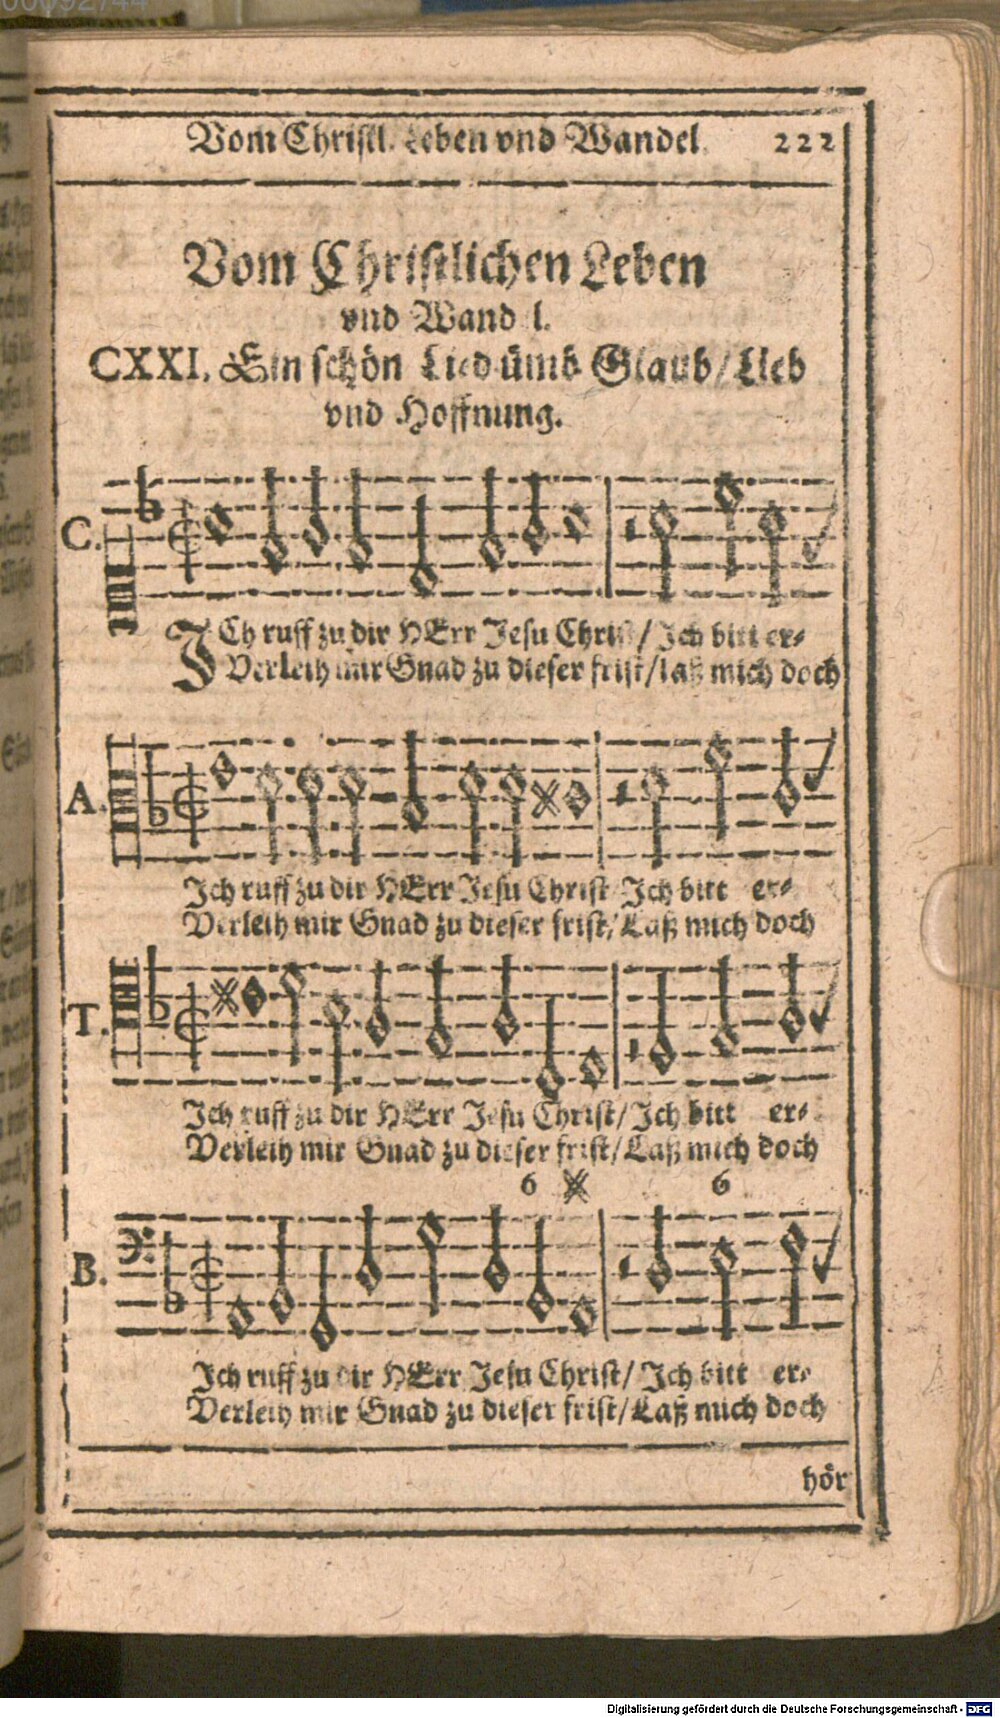 00092744
Vom Christl. Leben vnd Wandel. 222
Vom Christlichen Leben
vnd Wand l.
CXXI. Ein schön Lied ümb Glaub / Lieb
vnd Hoffnung.
C.
ICh ruff zu dir HErr Jesu Christ / Jch bitt er-
Verleih mir Gnad zu dieser frist / laß mich doch
A.
Jch ruff zu dir HErr Jesu Christ Jch bitt er-
Verleih mir Gnad zu dieser frist / Laß mich doch
T.
Jch ruff zu dir HErr Jesu Christ / Jch bitt er-
Verleih mir Gnad zu dieser frist / Laß mich doch
6 6
B.
Jch ruff zu dir HErr Jesu Christ / Jch bitt er-
Verleih mir Gnad zu dieser frist / Laß mich doch
hör
Digitalisierung gefördert durch die Deutsche Forschungsgemeinschaft - DFG